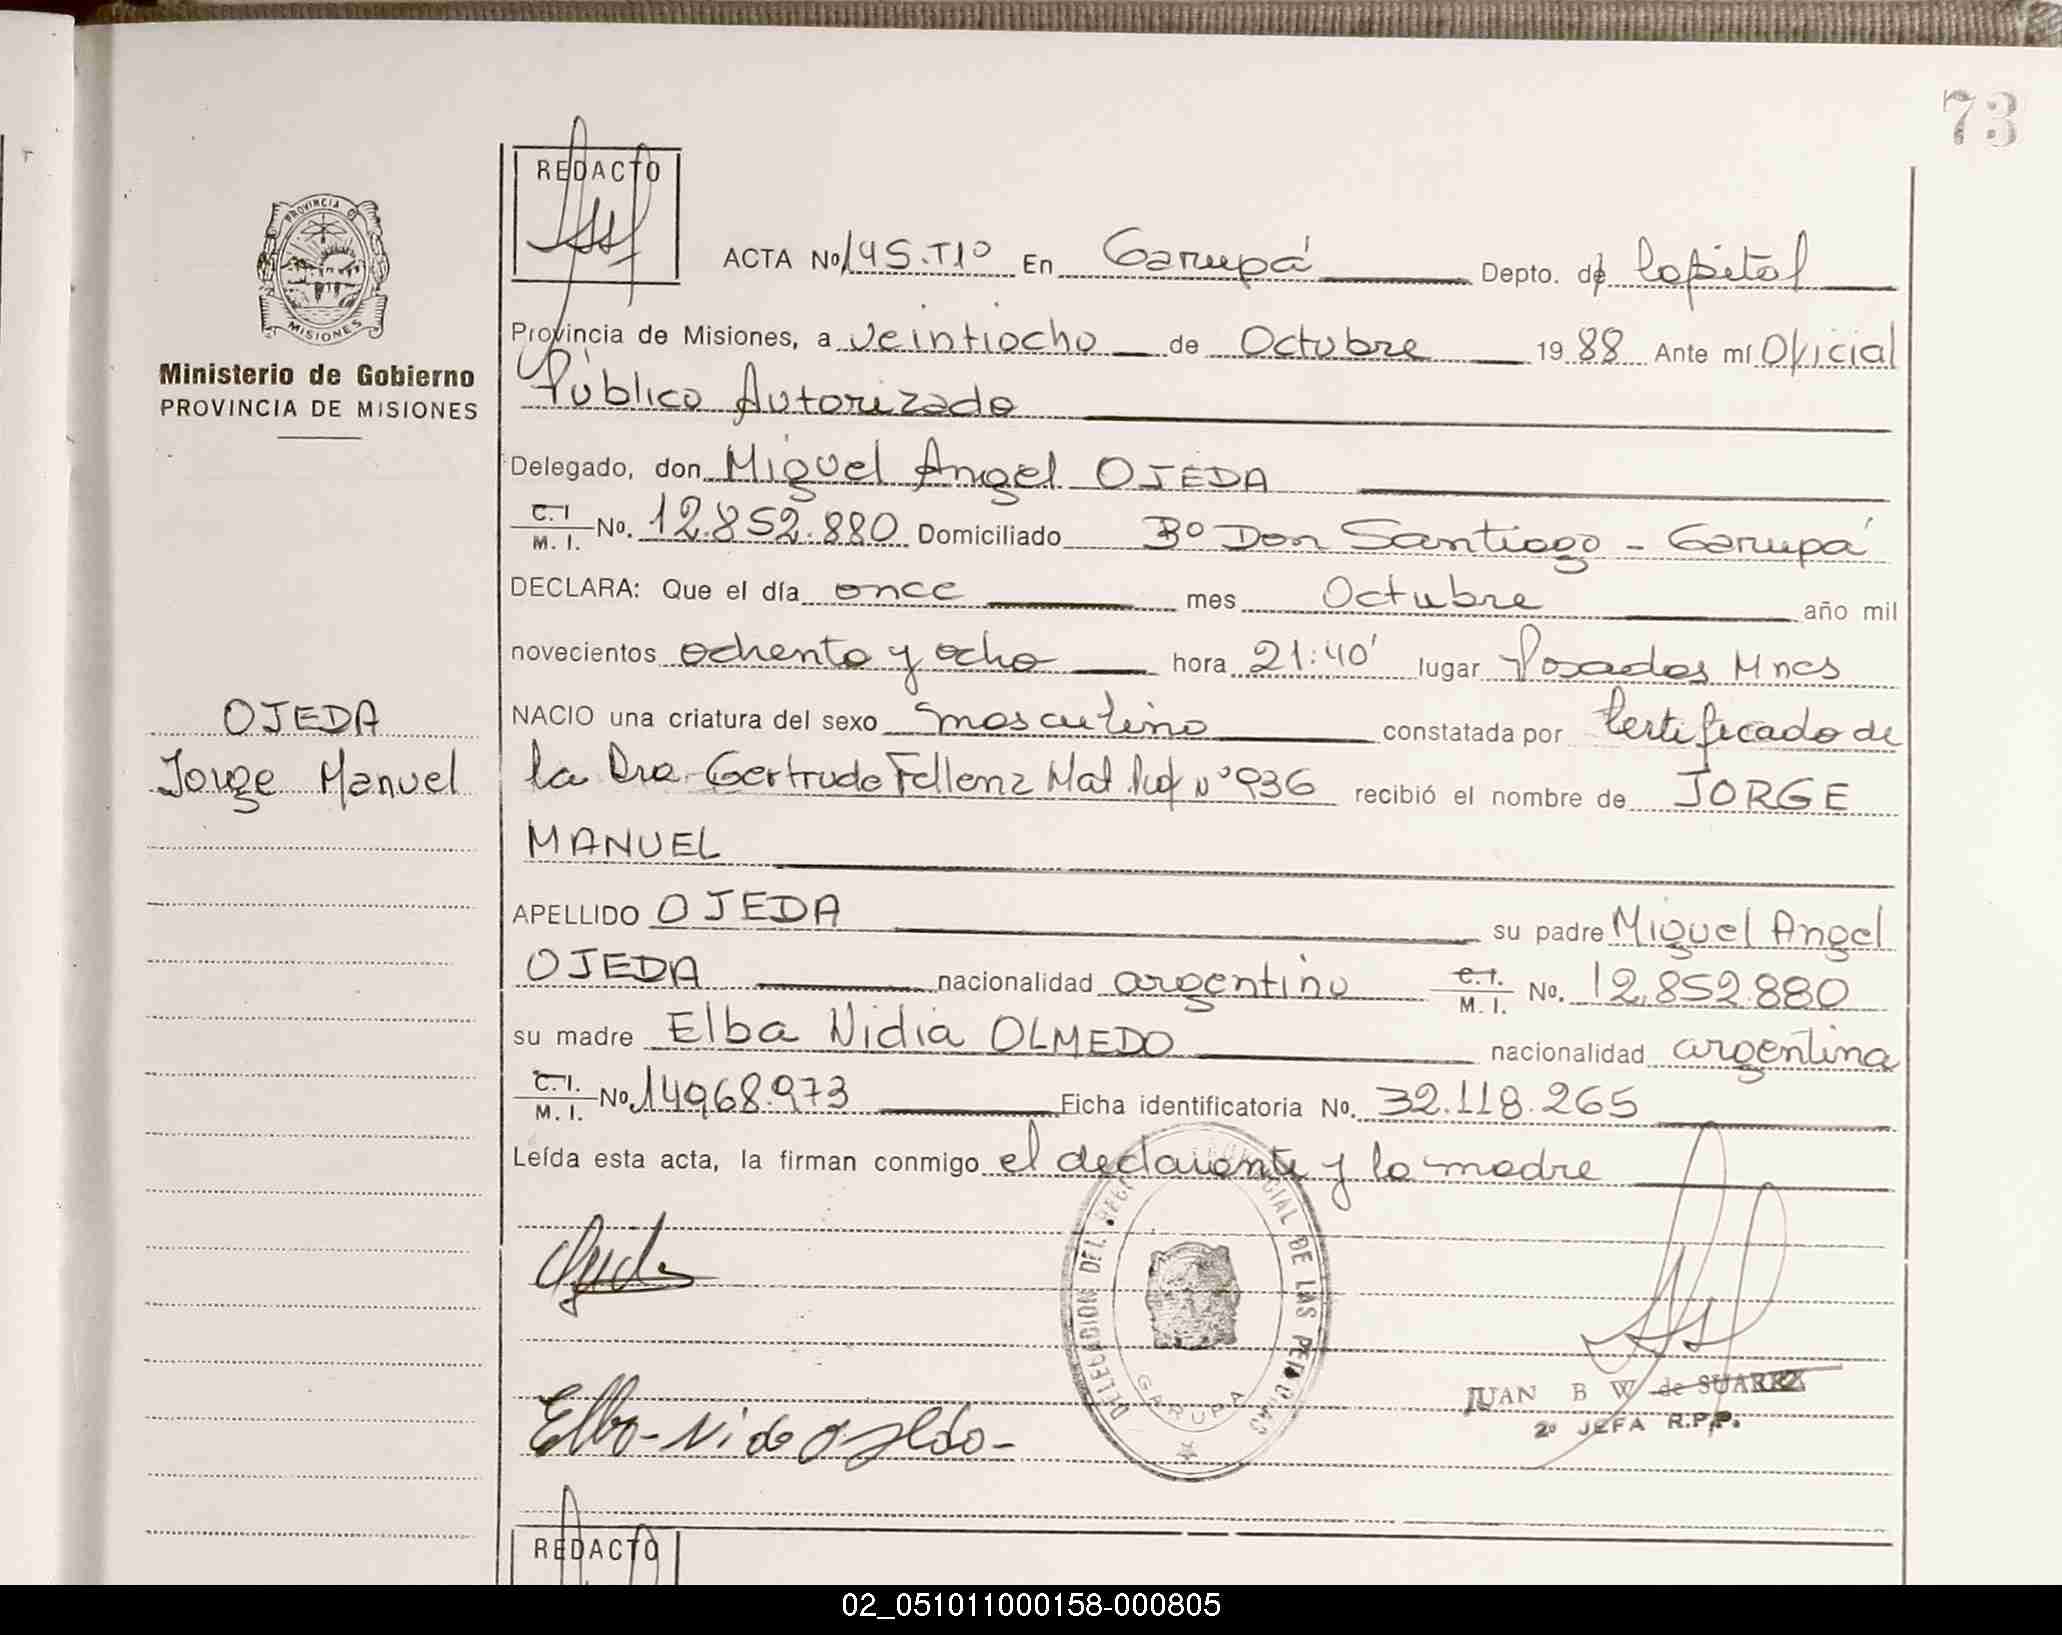 73
REDACTO
PROVINCIA DE
MISIONES
Ministerio de Gobierno
PROVINCIA DE MISIONES
ACTA No 145.T1º En Garupá Depto. de Capital
Provincia de Misiones, a veintiocho de Octubre 1988 Ante mí Oficial
Público Autorizado
Delegado, don Miguel Angel OJEDA
C.I M. I. No. 12.852.880 Domiciliado Bº Don Santiago - Garupá
DECLARA: Que el día once mes Octubre año mil
novecientos ochenta y ocho hora 21:40' lugar Posadas Mnes
OJEDA
NACIO una criatura del sexo masculino constatada por Certificado de
Jorge Manuel
la Dra. Gertrudo Fellenz Mat. Nº 936 recibió el nombre de JORGE
MANUEL
APELLIDO OJEDA su padre Miguel Angel
OJEDA nacionalidad argentino C.I. M. I. No. 12.852.880
su madre Elba Nidia OLMEDO nacionalidad argentina
C.I. M. I. No. 14968.973 Ficha identificatoria No. 32.118.265
Leída esta acta, la firman conmigo el declarante y la madre
DELEGACION DEL REG PROVINCIAL DE LAS PERSONAS
GARUPA
JUAN B W de SUAREZ
2º JEFA R.P.P.
REDACTO
02_051011000158-000805